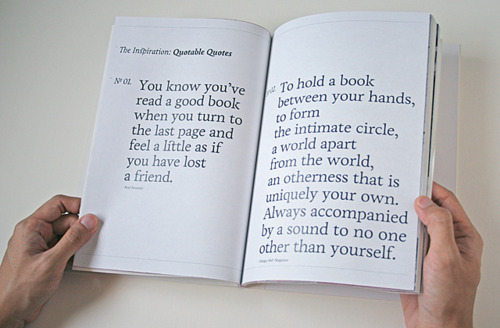 The Inspiration: Quotable Quotes
Nº 01.
You know you've
read a good book
when you turn to
the last page and
feel a little as if
you have lost
a friend.
Paul Sweeney
To hold a book
between your hands,
to form
the intimate circle,
a world apart
from the world,
an otherness that is
uniquely your own.
Always accompanied
by a sound to no one
other than yourself.